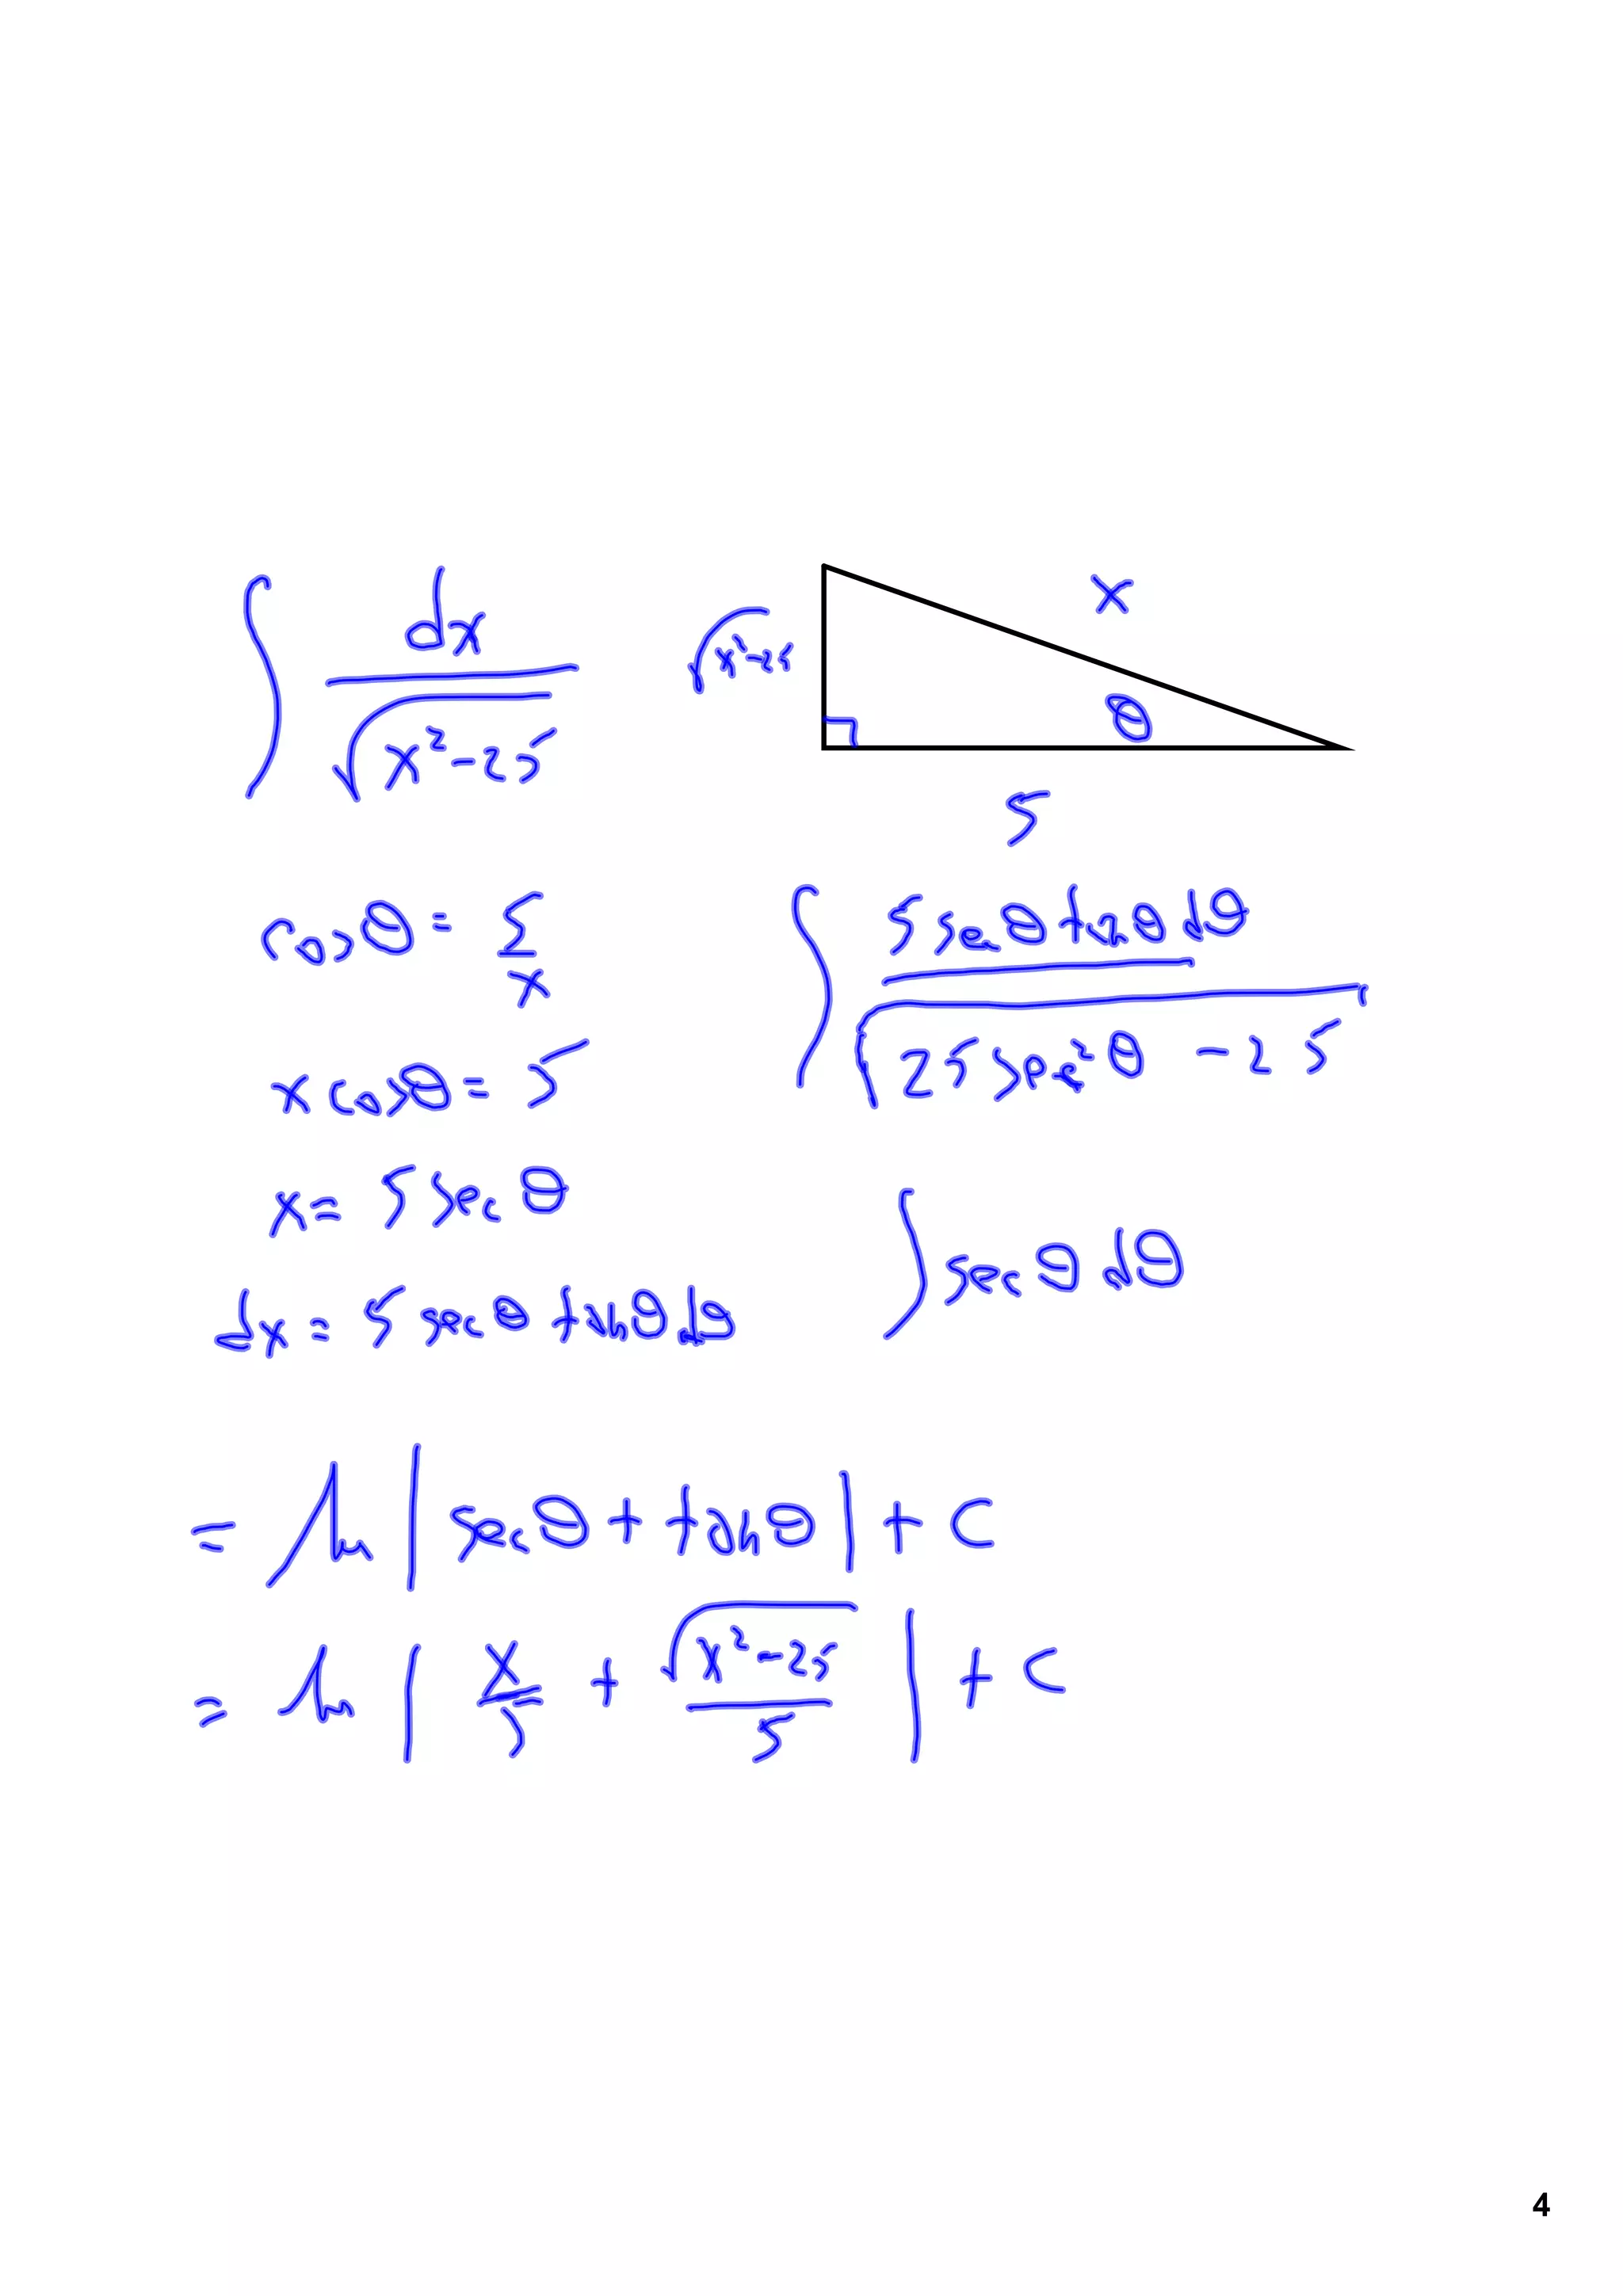 ∫ dx / √(x²-25)
√(x²-25)
x
θ
5
cosθ = 5/x
x cosθ = 5
x = 5 sec θ
dx = 5 secθ tanθ dθ
∫ 5 secθ tanθ dθ / √(25 sec²θ - 25)
∫ sec θ dθ
= ln | secθ + tanθ | + C
= ln | x/5 + √(x²-25)/5 | + C
4